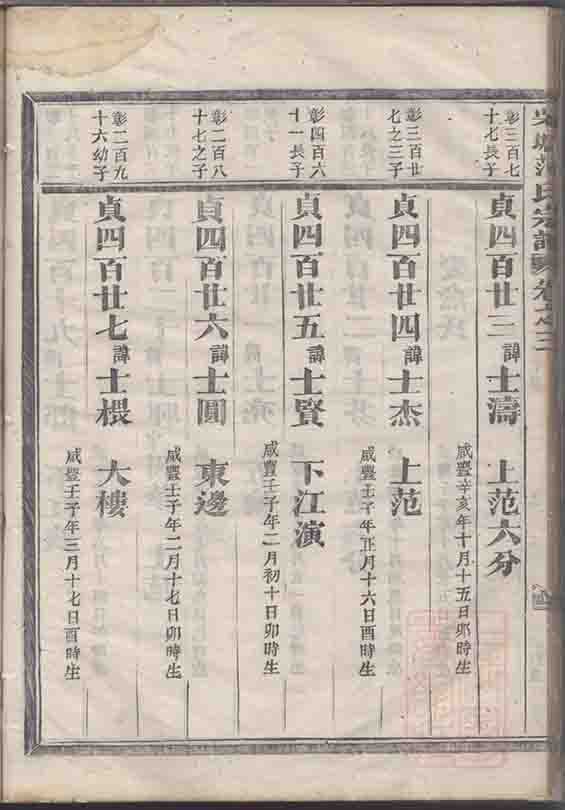 范氏宗譜
卷之三
彰三百七
十七長子
貞四百廿三諱士濤 上范六分
咸豐辛亥年十月十五日卯時生
彰三百廿
七之三子
貞四百廿四諱士杰 上范
咸豐壬子年正月十六日酉時生
彰四百六
十一長子
貞四百廿五諱士賢 下江演
咸豐壬子年二月初十日卯時生
彰二百八
十七之子
貞四百廿六諱士圓 東邊
咸豐壬子年二月十七日卯時生
彰二百九
十六幼子
貞四百廿七諱士椳 大樓
咸豐壬子年三月十七日酉時生